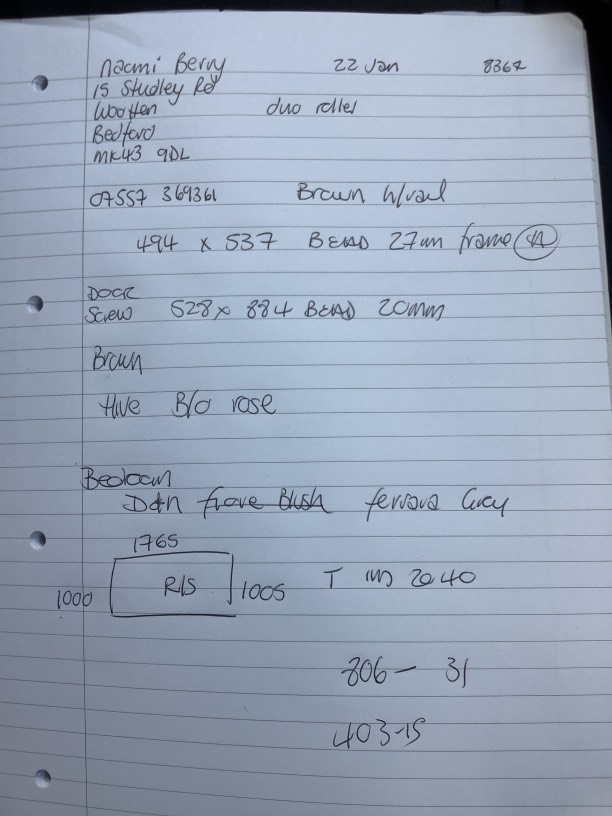 Naomi Berry 22 Jan 8367
15 Studley Rd
Wootten duo roller
Bedford
MK43 9DL
07557 369361 Brown H/rail
494 x 537 BEAD 27mm frame
Door
Screw 528 x 884 BEAD 20mm
Brown
Hive B/O rose
Bedroom
D&N Blush ferrara Grey
1765
1000 R/S 1005 T 2040
806 - 31
403-15